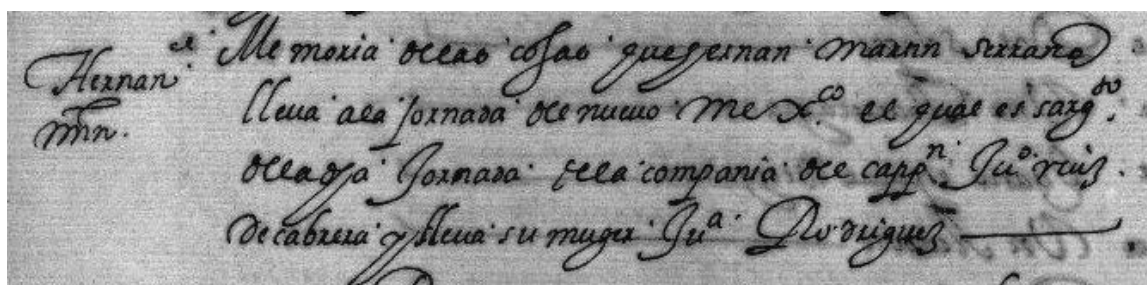 Hernan
mrn.
Memoria de las cosas que hernan martin serrano
lleva a la jornada de nuevo Mexco. el qual es sargto.
de la dha Jornada de la compania del cappn Juo ruiz
de cabrera y lleva su muger Jua Rodriguez